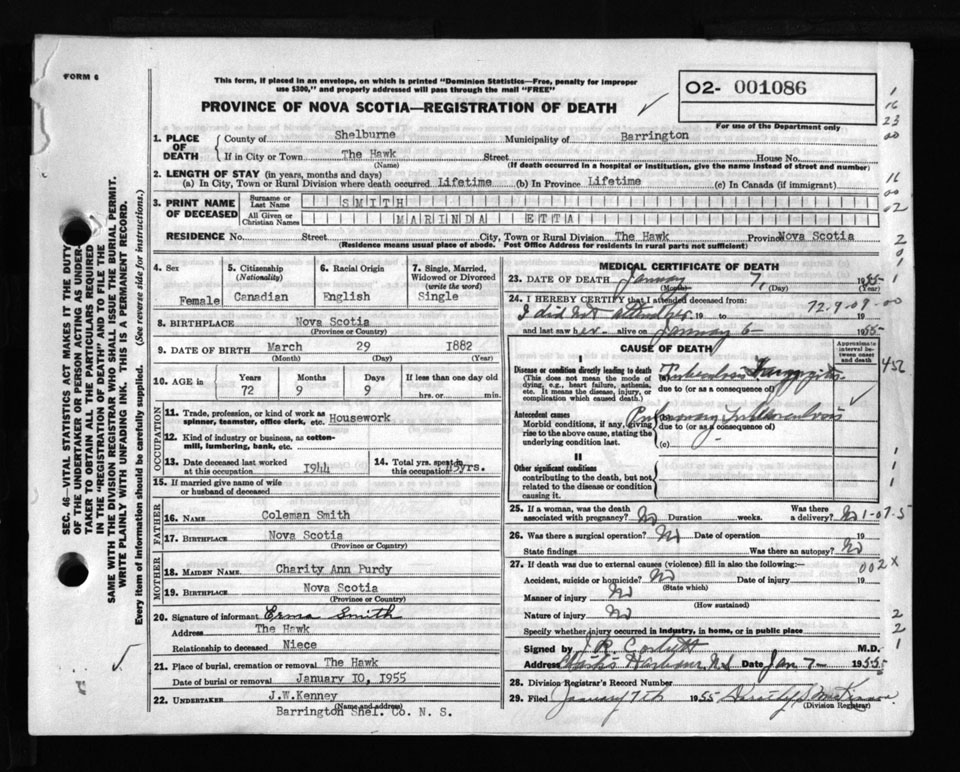 FORM 6
This form, if placed in an envelope, on which is printed "Dominion Statistics—Free, penalty for improper
use $300," and properly addressed will pass through the mail "FREE"
PROVINCE OF NOVA SCOTIA—REGISTRATION OF DEATH
O2- 001086
For use of the Department only
SEC. 46 VITAL STATISTICS ACT MAKES IT THE DUTY
OF THE UNDERTAKER OR PERSON ACTING AS UNDER-
TAKER TO OBTAIN ALL THE PARTICULARS REQUIRED
IN THE "REGISTRATION OF DEATH" AND TO FILE THE
SAME WITH THE DIVISION REGISTRAR WHO SHALL ISSUE THE BURIAL PERMIT.
WRITE PLAINLY WITH UNFADING INK. THIS IS A PERMANENT RECORD.
Every item of information should be carefully supplied. (See reverse side for instructions.)
1. PLACE OF DEATH
County of Shelburne Municipality of Barrington
If in City or Town The Hawk Street House No.
(Name) (If death occurred in a hospital or institution, give the name instead of street and number)
2. LENGTH OF STAY (in years, months and days)
(a) In City, Town or Rural Division where death occurred Lifetime (b) In Province Lifetime (c) In Canada (if immigrant)
3. PRINT NAME OF DECEASED
Surname or Last Name SMITH
All Given or Christian Names MARINDA ETTA
RESIDENCE No. Street City, Town or Rural Division The Hawk Province Nova Scotia
(Residence means usual place of abode. Post Office Address for residents in rural parts not sufficient)
4. Sex Female
5. Citizenship (Nationality) Canadian
6. Racial Origin English
7. Single, Married, Widowed or Divorced (write the word) Single
8. BIRTHPLACE Nova Scotia
(Province or Country)
9. DATE OF BIRTH March 29 1882
(Month) (Day) (Year)
10. AGE in Years 72 Months 9 Days 9 If less than one day old
hrs. or min.
OCCUPATION
11. Trade, profession, or kind of work as spinner, teamster, office clerk, etc. Housework
12. Kind of industry or business, as cotton-mill, lumbering, bank, etc.
13. Date deceased last worked at this occupation 1944
14. Total yrs. spent in this occupation yrs.
15. If married give name of wife or husband of deceased
FATHER
16. NAME Coleman Smith
17. BIRTHPLACE Nova Scotia
(Province or Country)
MOTHER
18. MAIDEN NAME Charity Ann Purdy
19. BIRTHPLACE Nova Scotia
(Province or Country)
20. Signature of informant Erma Smith
Address The Hawk
Relationship to deceased Niece
21. Place of burial, cremation or removal The Hawk
Date of burial or removal January 10, 1955
22. UNDERTAKER J.W.Kenney
(Name and address)
Barrington Shel. Co. N. S.
MEDICAL CERTIFICATE OF DEATH
23. DATE OF DEATH January 7, 1955
(Month) (Day) (Year)
24. I HEREBY CERTIFY that I attended deceased from: 72-9-09-00
I did not attend her 19 to 19
and last saw her alive on January 6- 1955-
CAUSE OF DEATH
Approximate interval between onset and death
I
Disease or condition directly leading to death
(This does not mean the mode of dying, e.g., heart failure, asthenia, etc. It means the disease, injury, or complication which caused death.)
Tuberculosis
due to (or as a consequence of)
Antecedent causes
Morbid conditions, if any, giving rise to the above cause, stating the underlying condition last.
Pulmonary Tuberculosis
due to (or as a consequence of)
(c)
II
Other significant conditions
contributing to the death, but not related to the disease or condition causing it.
25. If a woman, was the death associated with pregnancy? No Duration weeks. Was there a delivery? No
26. Was there a surgical operation? No Date of operation 19
State findings Was there an autopsy? No
27. If death was due to external causes (violence) fill in also the following:—
Accident, suicide or homicide? No Date of injury 19
(State which)
Manner of injury No
(How sustained)
Nature of injury No
Specify whether injury occurred in industry, in home, or in public place
Signed by M.D.
Address Clark's Harbour, N.S. Date Jan 7- 1955
28. Division Registrar's Record Number
29. Filed January 7th 1955
(Division Registrar)
1
16
23
00
16
00
02
2
0
1
1
1
1
1-07-5
002X
2
2
1